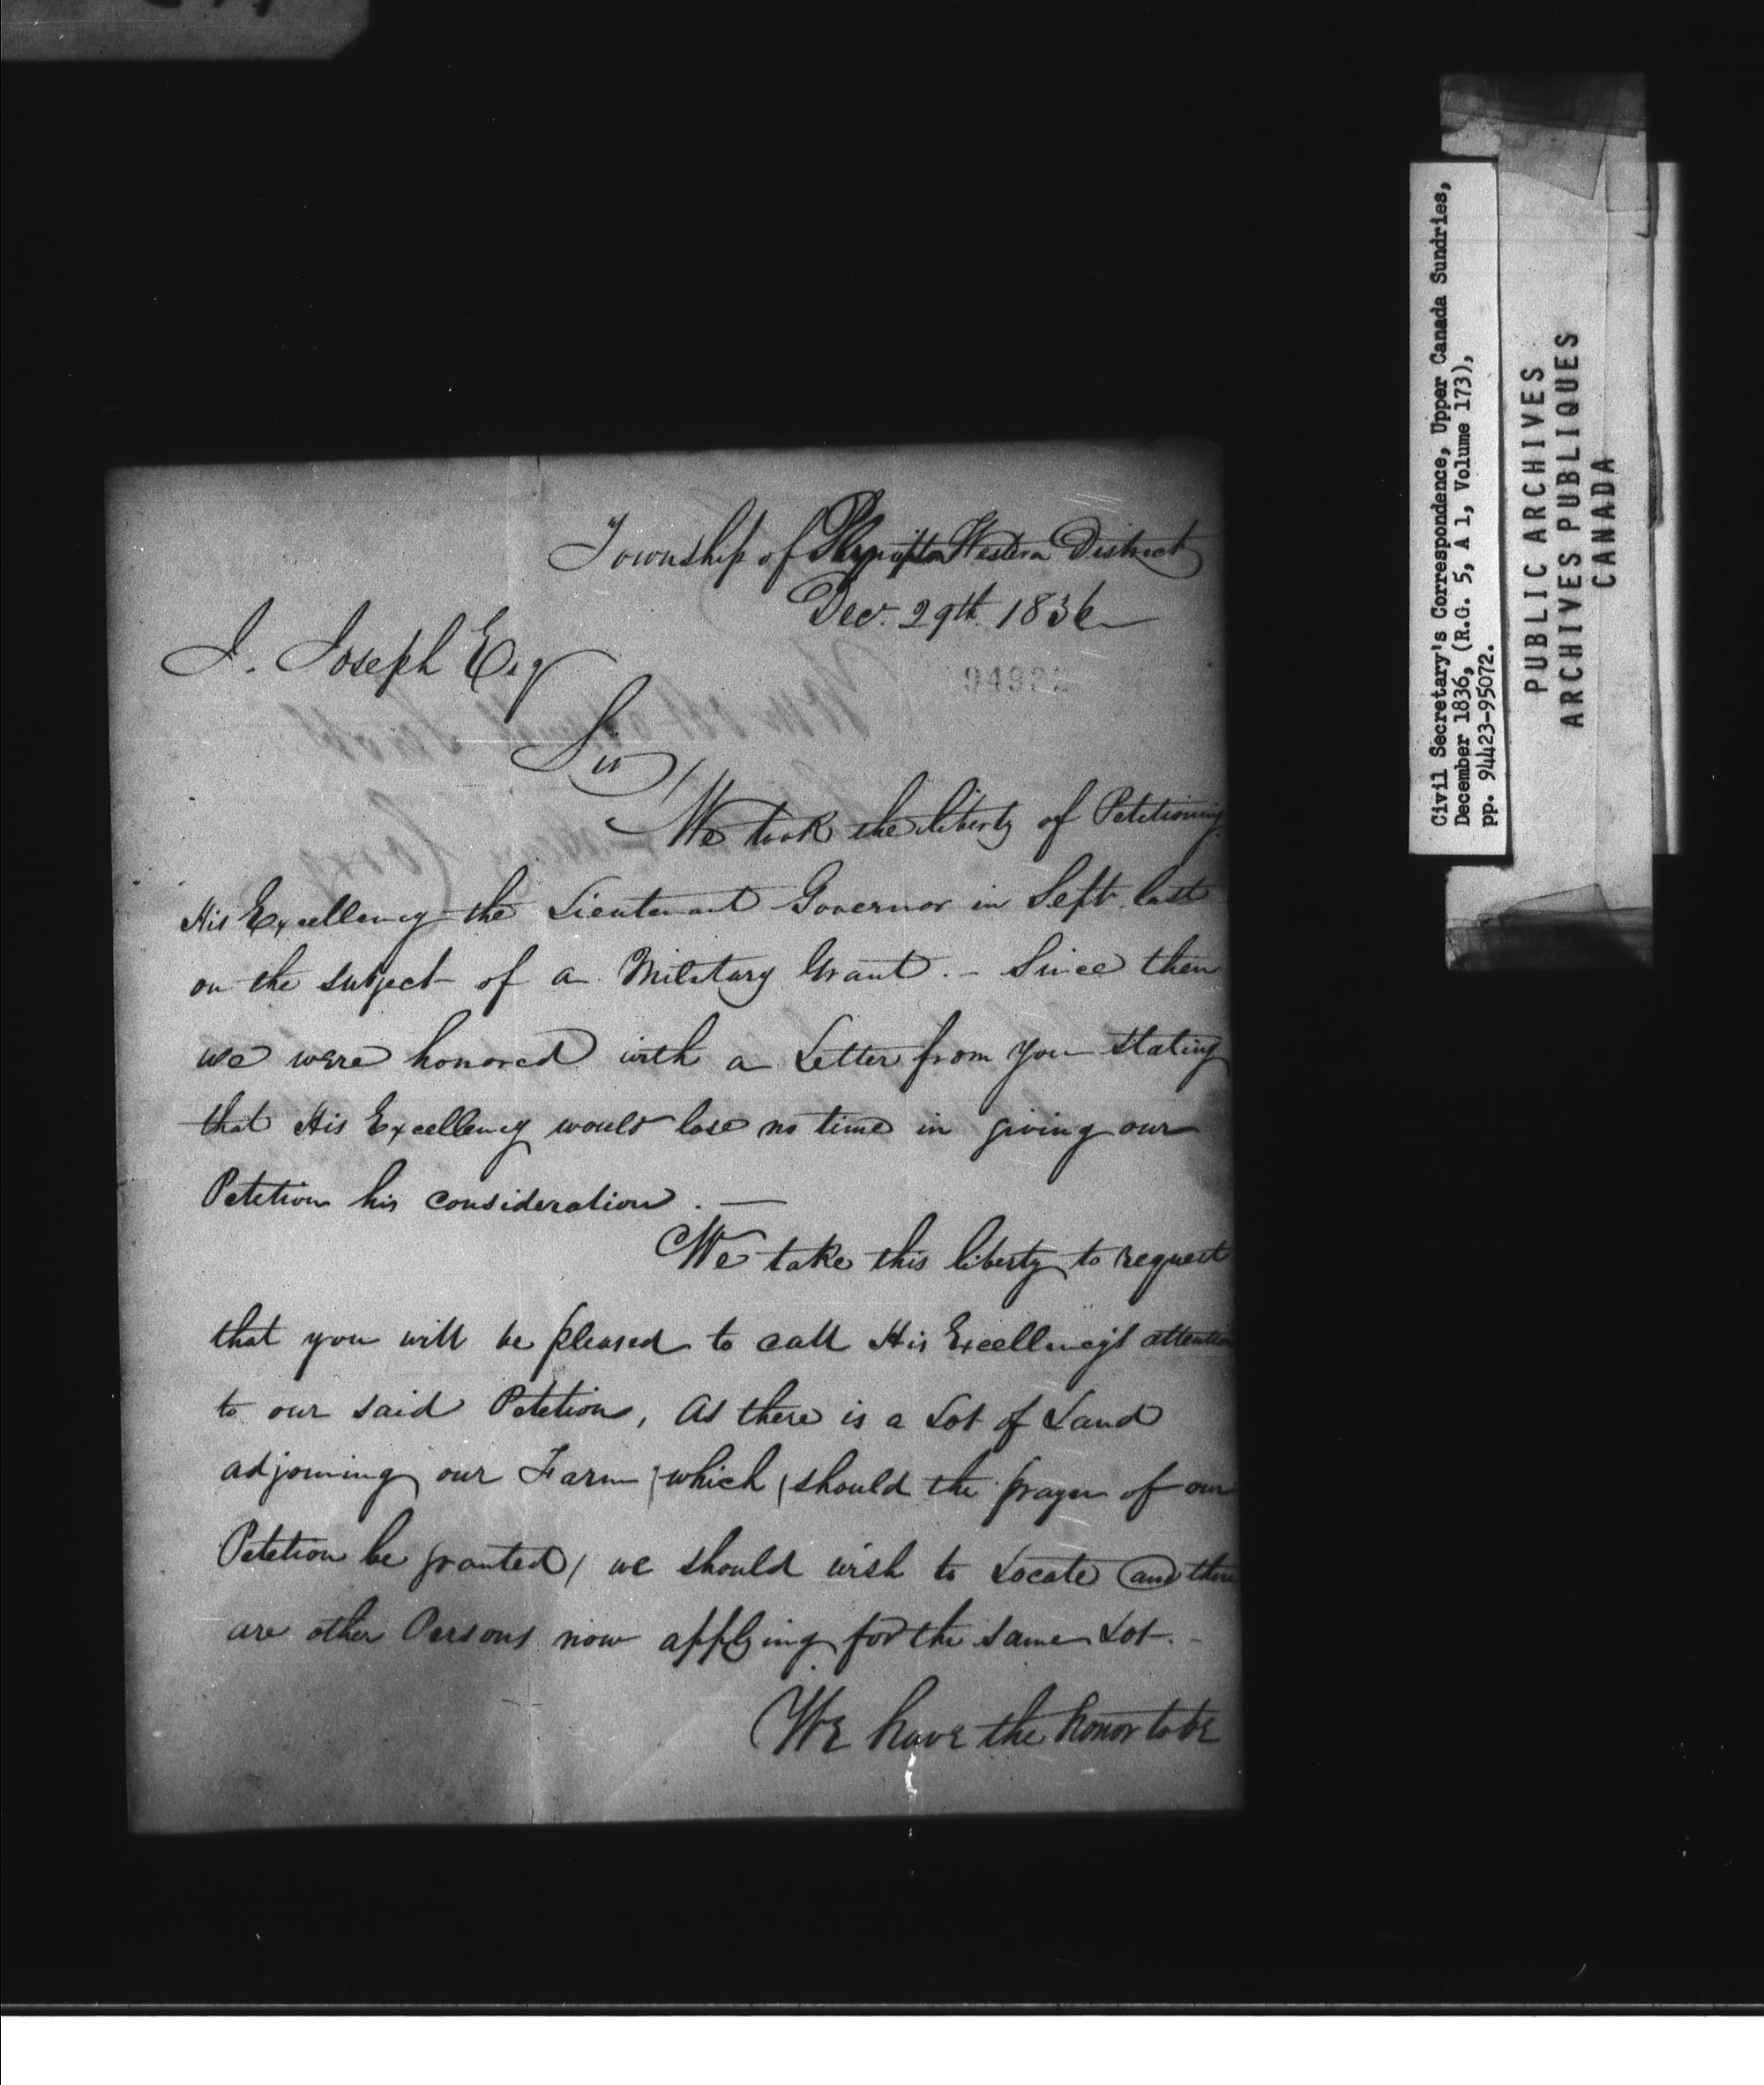 Township of Plympton Western District
Dec. 29th. 1836
J. Joseph Esq
Sir,
We took the liberty of Petitioning
His Excellency the Lieutenant Governor in Sept. last
on the subject of a Military Grant. - Since then
we were honored with a Letter from you stating
that His Excellency would lose no time in giving our
Petition his consideration. —
We take this liberty to request
that you will be pleased to call His Excellency's attention
to our said Petition, as there is a Lot of Land
adjoining our Farm, which (should the prayer of our
Petition be granted) we should wish to Locate and there
are other Persons now applying for the same Lot. -
We have the honor to be
Civil Secretary's Correspondence, Upper Canada Sundries,
December 1836, (R.G. 5, A 1, Volume 173),
pp. 94423-95072.
PUBLIC ARCHIVES
ARCHIVES PUBLIQUES
CANADA